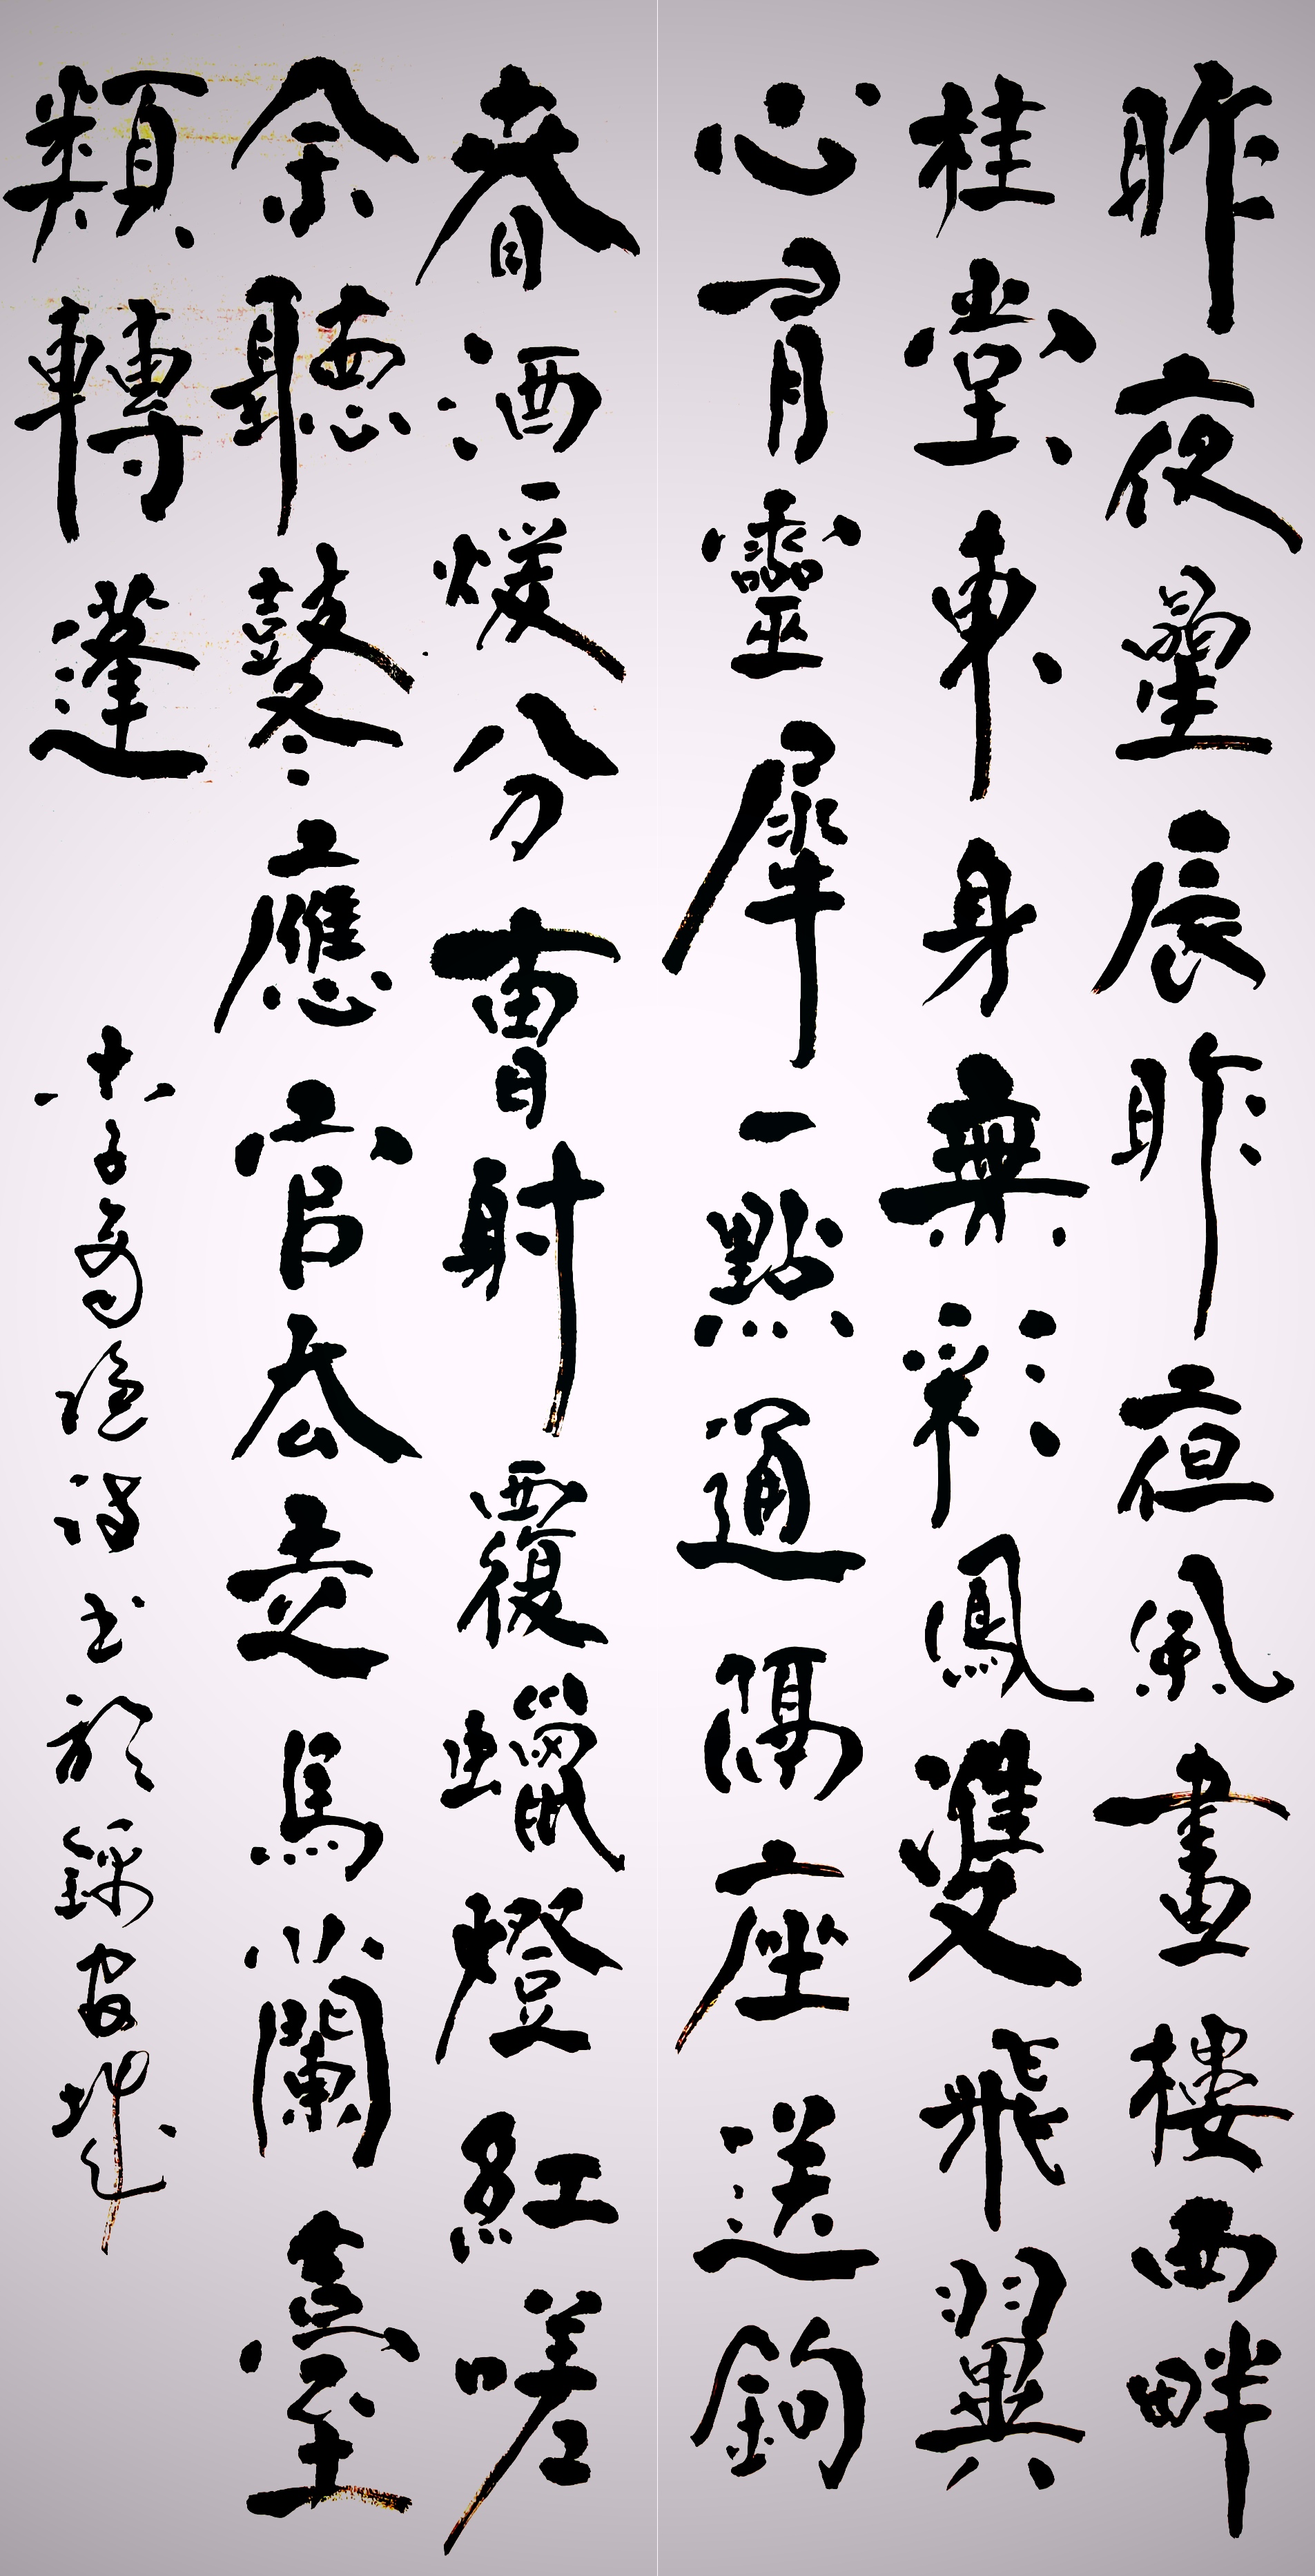 昨夜曐辰昨夜風畫樓西畔
桂堂東身無彩鳳雙飛翼
心有靈犀一點通隔座送鉤
春酒煖分曹射覆蠟燈紅嗟
余聽鼕應官去走馬蘭臺
類轉蓬
李商隱詩書於